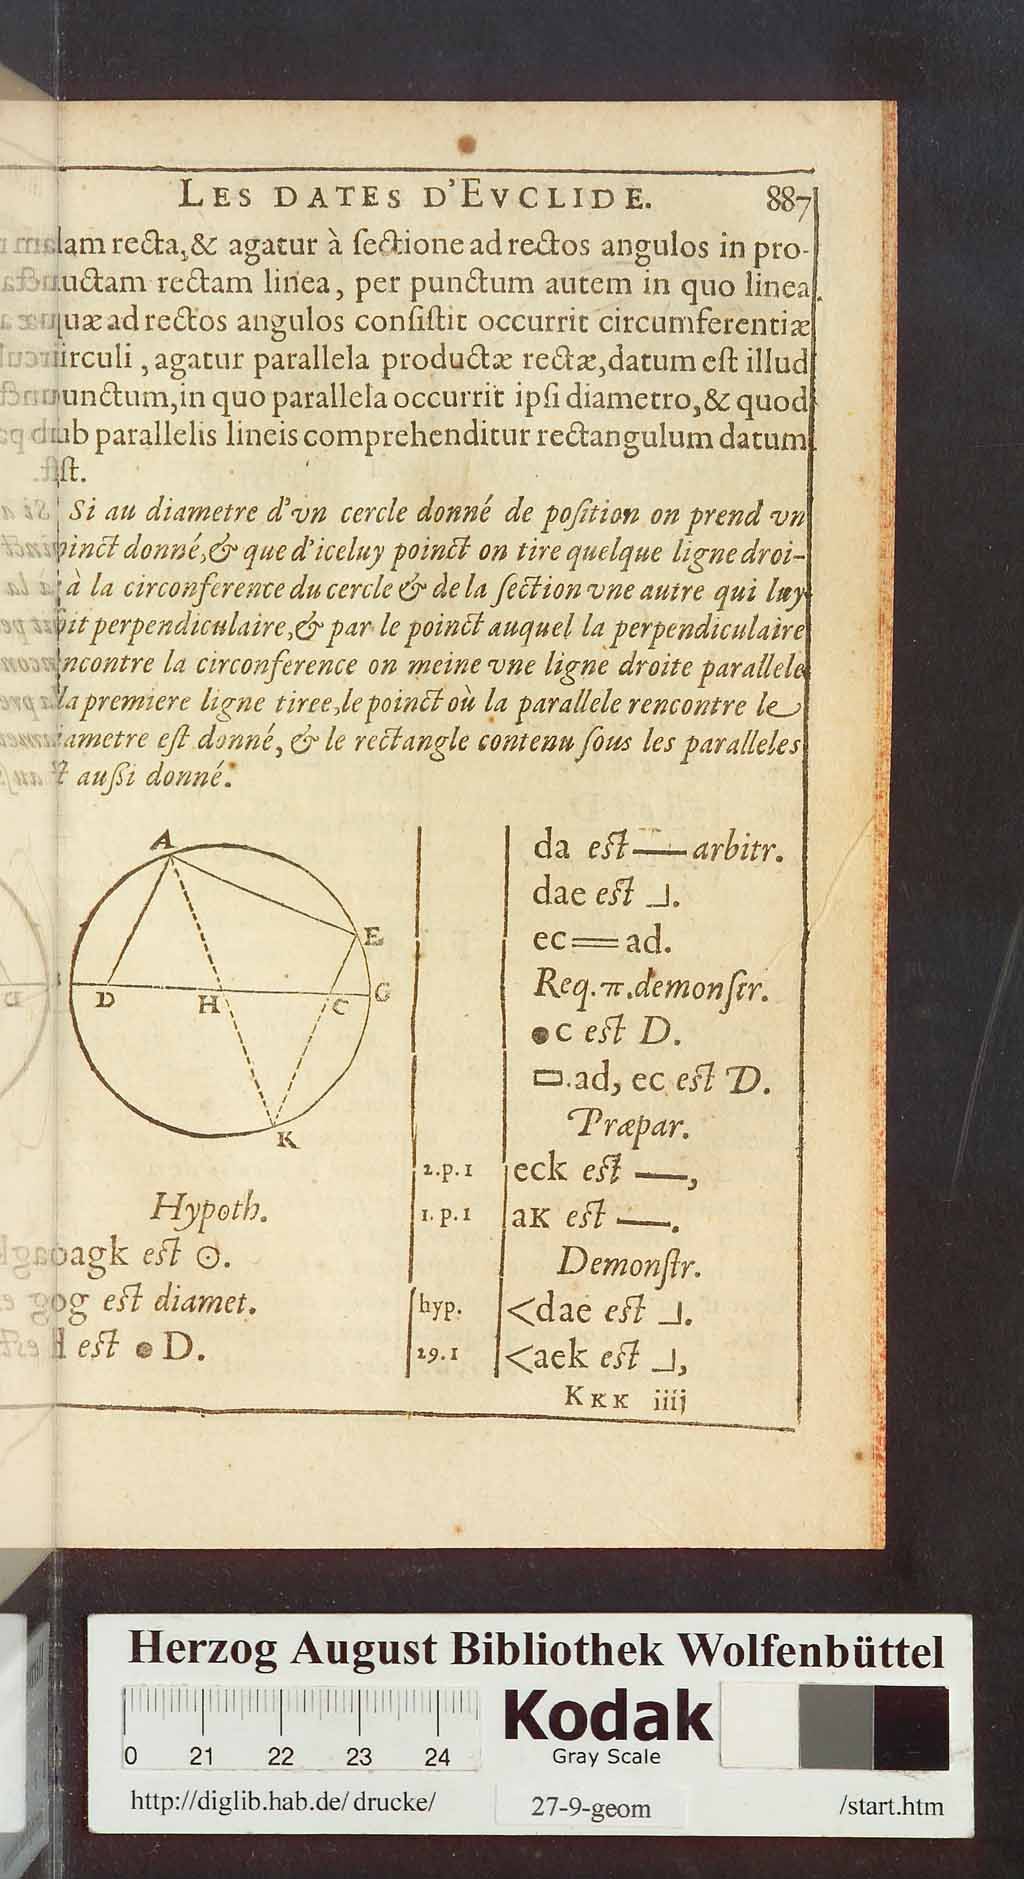 LES DATES D'EVCLIDE. 887
lam recta, & agatur à ſectione ad rectos angulos in pro-
uctam rectam linea, per punctum autem in quo linea
uæ ad rectos angulos conſiſtit occurrit circumferentiæ
irculi, agatur parallela productæ rectæ, datum eſt illud
unctum, in quo parallela occurrit ipſi diametro, & quod
ub parallelis lineis comprehenditur rectangulum datum
ſt.
Si au diametre d'vn cercle donné de poſition on prend vn
oinct donné, & que d'iceluy poinct on tire quelque ligne droi-
à la circonference du cercle & de la ſection vne autre qui luy
oit perpendiculaire, & par le poinct auquel la perpendiculaire
ncontre la circonference on meine vne ligne droite parallele
la premiere ligne tiree, le poinct où la parallele rencontre le
iametre eſt donné, & le rectangle contenu ſous les paralleles
ſt auſſi donné.
A
E
D
H
C
G
K
Hypoth.
agk eſt ⊙.
og eſt diamet.
d eſt ● D.
da eſt — arbitr.
dae eſt ⅃.
ec = ad.
Req. π. demonſtr.
● c eſt D.
▭. ad, ec eſt D.
Præpar.
2.p.1 eck eſt —,
1.p.1 aK eſt —.
Demonſtr.
hyp. <dae eſt ⅃.
29.1 <aek eſt ⅃,
KKK iiij
Herzog August Bibliothek Wolfenbüttel
0 21 22 23 24
Kodak
Gray Scale
http://diglib.hab.de/drucke/ 27-9-geom /start.htm